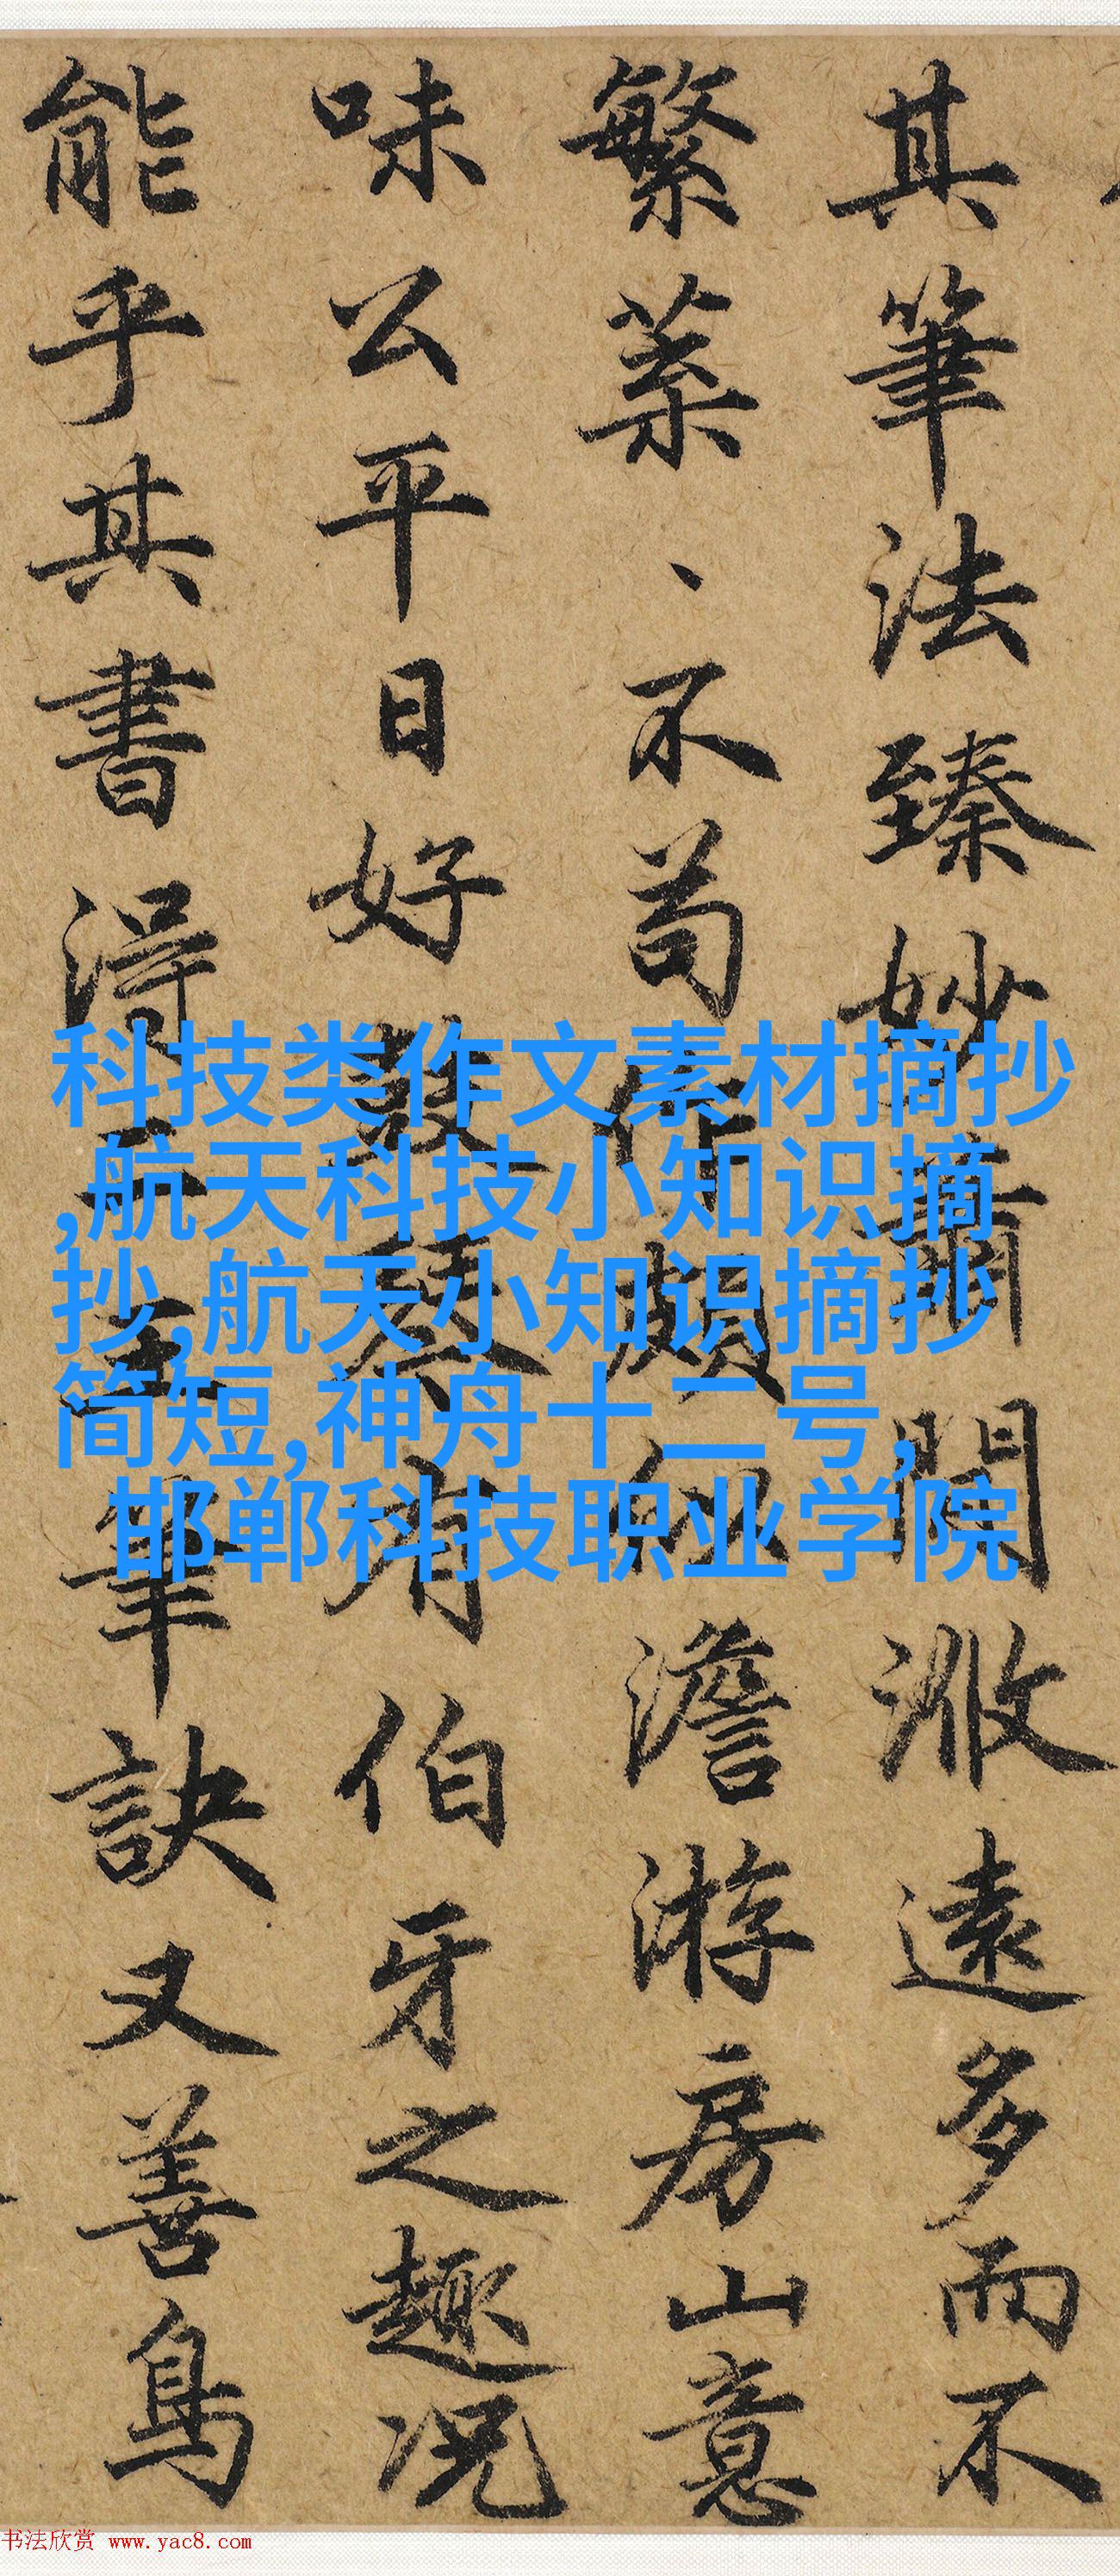 其筆法臻妙
開
遠多而不
繁菜、不苟作頗
澹游房山意
味公平日好
伯牙之趣况
能乎其書得
筆訣又善鳥
科技类作文素材摘抄
,航天科技小知识摘
抄,航天小知识摘抄
简短,神舟十二号,
邯郸科技职业学院
书法欣赏 www.yac8.com